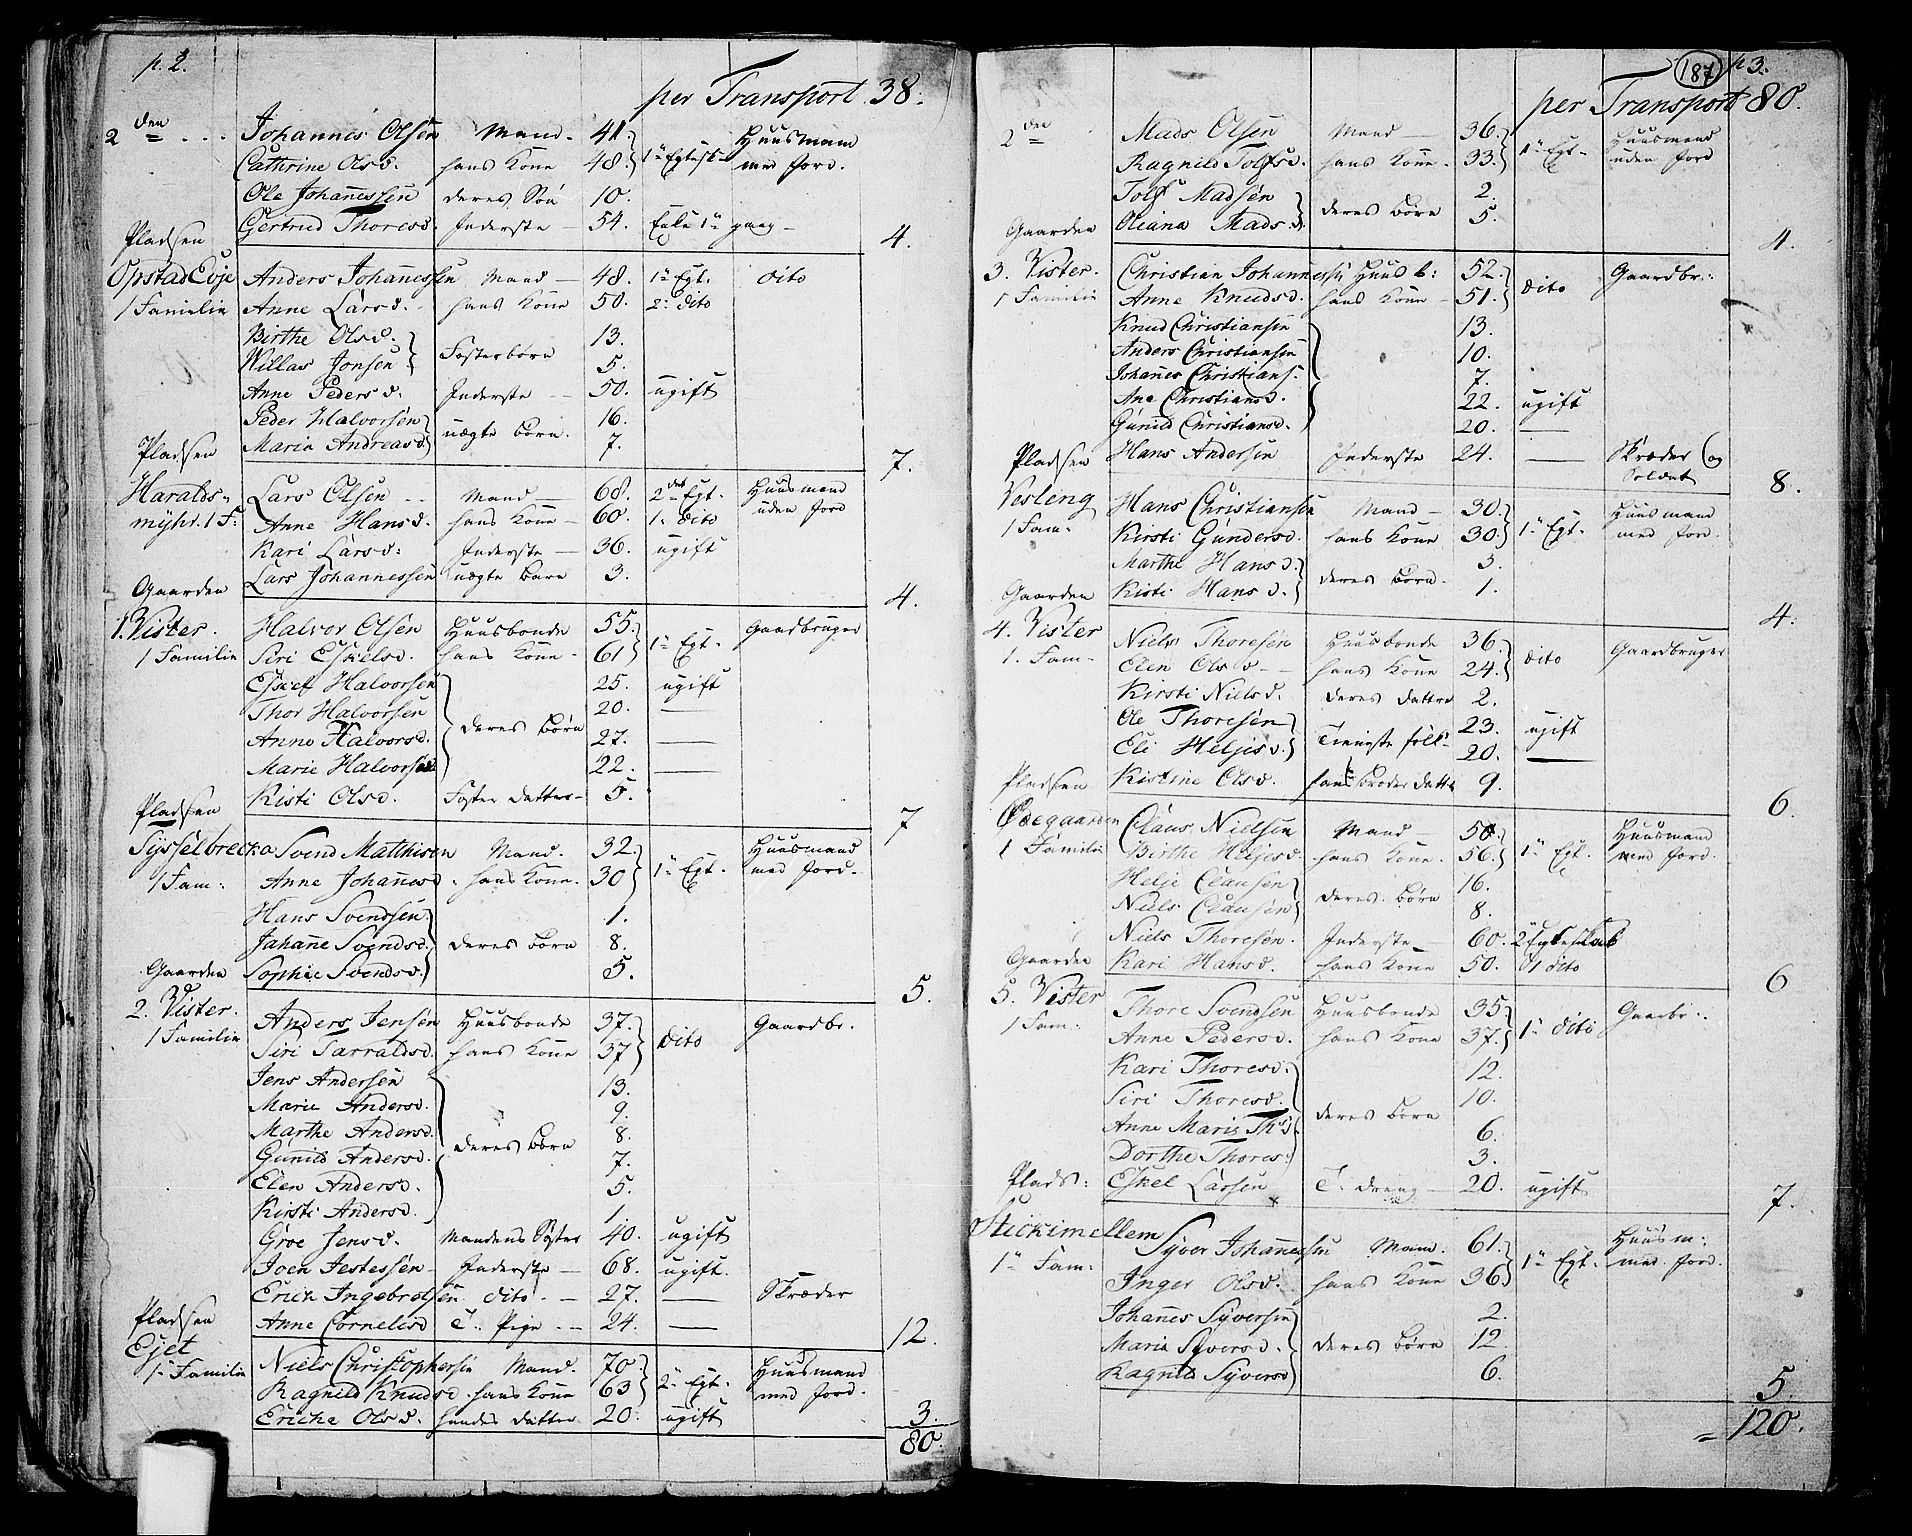 p. 2.
per Transport 38.
2 den Johannes Olsen Mand 41. 1te Egtesk. Huusmann
Cathrine Olsd. hans Kone 48. med Jord.
Ole Johannessen deres Søn 10.
Gertrud Thoresd. Inderste 54. Enke 1te gang
Pladsen 4.
Opstad Eye Anders Johannessen Mand 48. 1te Egt. dito
1 Familie Anne Larsd. hans Kone 50. 2. dito
Birthe Olsd.
Willas Jonsen Fosterbørn 13. 5.
Anne Pedersd. Inderste 50. ugift
Peder Halvorsen 16.
Maria Andreasd. uægte Børn. 7.
Pladsen 7.
Haralds- Lars Olsen Mand 68. 2det Egt. Huusmand
myhr. 1 F: Anne Hansd. hans Kone 60. 1. dito uden Jord
Kari Larsd: Inderste 36. ugift
Lars Johannessen uægte Barn 3.
Gaarden 4.
1. Vister. Halvor Olsen Huusbonde 55. 1te Egt. Gaardbruger
1 Familie Siri Eskelsd. hans Kone 61
Eskel Halvorsen 25. ugift
Thor Halvorsen 20. —
Anne Halvorsd. deres Børn 27. —
Marie Halvorsd. 22. —
Kisti Olsd. Foster datter 5.
Pladsen 7
Sysselbrecka Svend Matthisen Mand. 32. 1te Egt. Huusmand
1 Fam: Anne Johannesd. hans Kone. 30 med Jord.
Hans Svendsen 1.
Johanne Svendsd. deres Børn 8.
Sophie Svendsd. 5.
Gaarden 5.
2. Vister. Anders Jensen Huusbonde 37. dito Gaardbr.
1 Familie Siri Tarraldsd. hans Kone 37
Jens Andersen 13.
Marie Andersd. 9.
Marthe Andersd. 8.
Gunild Andersd. deres Børn 7.
Elen Andersd. 5.
Kirsti Andersd. 1.
Groe Jensd. Mandens Søster 40. ugift
Joen Jestessen Inderste 68. ugift.
Erich Ingebretsen dito 27. — Skræder
Anne Cornelisd T. Pige 24. —
Pladsen 12.
Ejet Niels Christophersen Mand. 70. 2te Egt. Huusmand
1 Familie Ragnild Knudsd. hans Kone 63 med Jord.
Ericha Olsd. hendes datter 20. ugift 3.
80.
187 p 3.
per Transport 80.
2 den Mads Olsen Mand 36. 1te Egt. Huusmand
Ragnild Tolfsd. hans Kone 33. uden Jord
Tolf Madsen 2.
Oliana Madsd. deres Børn 5.
Gaarden 4.
3. Vister. Christian Johannessen Huusb: 52. dito Gaardbr.
1 Familie Anne Knudsd. hans Kone 51.
Knud Christiansen 13.
Anders Christiansen 10.
Johannes Christians. 7.
Ane Christiansd. 22. ugift
Gunild Christiansd. 20. —
Pladsen Hans Andersen Inderste 24. — Skræder og
Soldat 8.
Vesleng Hans Christiansen Mand 30. 1te Egt. Huusmand
1 Fam. Kirsti Gundersd. hans Kone 30. med Jord.
Marthe Hansd. 3.
Kisti Hansd. deres Børn. 1.
Gaarden 4.
4. Vister Niels Thoresen Huusbonde 36. dito Gaardbruger
1. Fam. Elen Olsd. hans Kone 24.
Kirsti Nielsd. deres datter 2.
Ole Thoresen 23. ugift
Eli Heljesd. Tieneste folk 20. —
Pladsen Kistine Olsd. hans broder datter 9.
6.
Ødegaarden Claus Nielsen Mand 50. 1te Egt. Huusmand
1 Familie Birthe Heljesd. hans Kone. 56. med Jord.
Helje Clausen 16.
Niels Clausen deres Børn 8.
Niels Thoresen. Inderste 60. 2 Egteskab
Gaarden Kari Hansd. hans Kone 50. 1 dito
6
5. Vister Thore Svendsen Huusbonde 35. 1te dito Gaarbr.
1 Fam: Anne Pedersd. hans Kone 37.
Kari Thoresd. 12.
Siri Thoresd. 10.
Anne Marie Thd. deres Børn 6.
Dorthe Thores: 3.
Plads: Eskel Larsen T. dreng 20. ugift
7.
Stickimellem Syver Johannessen Mand. 61. 1te Egt. Huusm:
1te Fam: Inger Olsd. hans Kone 36 med Jord.
Johannes Syversen 2.
Maria Syversd. deres Børn 12.
Ragnild Syversd 6.
5.
= 120.